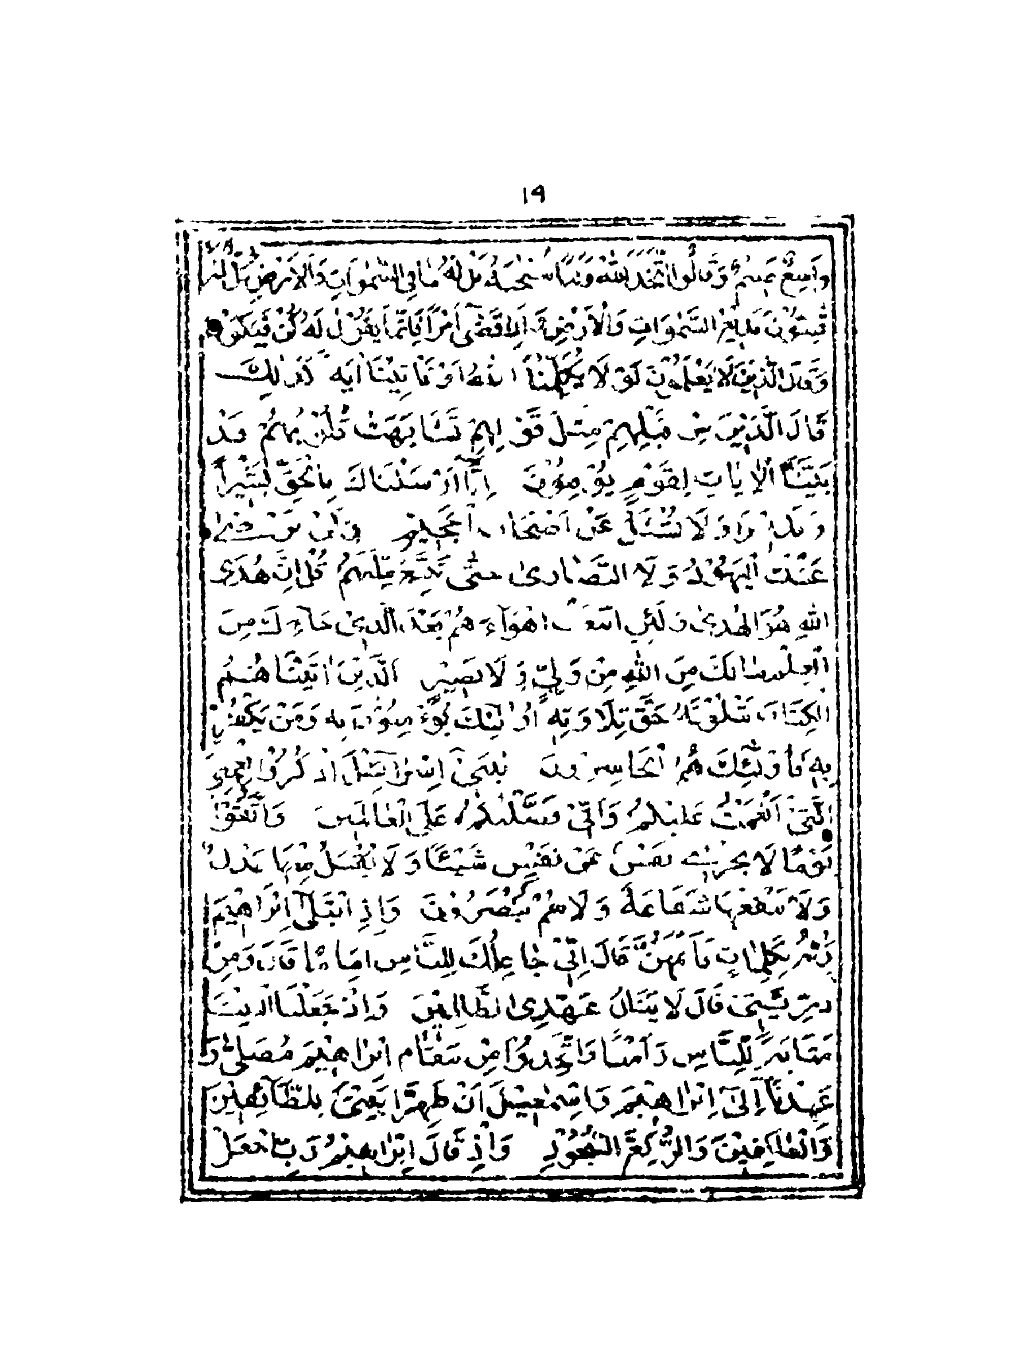 ١٩
وَاسِعٌ عَلِيمٌ وَقَالُوا اتَّخَذَ اللّٰهُ وَلَدًا سُبْحٰنَهُ بَلْ لَهُ مَا فِي السَّمٰوَاتِ وَالْاَرْضِ كُلٌّ لَهُ
قٰنِتُوْنَ بَدِيْعُ السَّمٰوَاتِ وَالْاَرْضِ وَاِذَا قَضٰى اَمْرًا فَاِنَّمَا يَقُوْلُ لَهُ كُنْ فَيَكُوْنُ
وَقَالَ الَّذِيْنَ لَا يَعْلَمُوْنَ لَوْ لَا يُكَلِّمُنَا اللّٰهُ اَوْ تَاْتِيْنَا اٰيَةٌ كَذٰلِكَ
قَالَ الَّذِيْنَ مِنْ قَبْلِهِمْ مِثْلَ قَوْلِهِمْ تَشَابَهَتْ قُلُوْبُهُمْ قَدْ
بَيَّنَّا الْاٰيَاتِ لِقَوْمٍ يُوْقِنُوْنَ اِنَّا اَرْسَلْنَاكَ بِالْحَقِّ بَشِيْرًا
وَنَذِيْرًا وَلَا تُسْئَلُ عَنْ اَصْحَابِ الْجَحِيْمِ وَلَنْ تَرْضٰى
عَنْكَ الْيَهُوْدُ وَلَا النَّصَارٰى حَتّٰى تَتَّبِعَ مِلَّتَهُمْ قُلْ اِنَّ هُدَى
اللّٰهِ هُوَ الْهُدٰى وَلَئِنِ اتَّبَعْتَ اَهْوَآءَهُمْ بَعْدَ الَّذِيْ جَآءَكَ مِنَ
الْعِلْمِ مَا لَكَ مِنَ اللّٰهِ مِنْ وَلِيٍّ وَلَا نَصِيْرٍ اَلَّذِيْنَ اٰتَيْنَاهُمُ
الْكِتَابَ يَتْلُوْنَهُ حَقَّ تِلَاوَتِهِ اُولٰئِكَ يُؤْمِنُوْنَ بِهِ وَمَنْ يَكْفُرْ
بِهِ فَاُولٰئِكَ هُمُ الْخَاسِرُوْنَ يٰبَنِيْ اِسْرَائِيْلَ اذْكُرُوْا نِعْمَتِيَ
الَّتِيْ اَنْعَمْتُ عَلَيْكُمْ وَاَنِّيْ فَضَّلْتُكُمْ عَلَى الْعَالَمِيْنَ وَاتَّقُوْا
يَوْمًا لَا تَجْزِيْ نَفْسٌ عَنْ نَفْسٍ شَيْئًا وَلَا يُقْبَلُ مِنْهَا عَدْلٌ
وَلَا تَنْفَعُهَا شَفَاعَةٌ وَلَا هُمْ يُنْصَرُوْنَ وَاِذِ ابْتَلٰى اِبْرَاهِيْمَ
رَبُّهُ بِكَلِمَاتٍ فَاَتَمَّهُنَّ قَالَ اِنِّيْ جَاعِلُكَ لِلنَّاسِ اِمَامًا قَالَ وَمِنْ
ذُرِّيَّتِيْ قَالَ لَا يَنَالُ عَهْدِى الظَّالِمِيْنَ وَاِذْ جَعَلْنَا الْبَيْتَ
مَثَابَةً لِلنَّاسِ وَاَمْنًا وَاتَّخِذُوْا مِنْ مَقَامِ اِبْرَاهِيْمَ مُصَلًّى وَ
عَهِدْنَا اِلٰى اِبْرَاهِيْمَ وَاِسْمٰعِيْلَ اَنْ طَهِّرَا بَيْتِيَ لِلطَّائِفِيْنَ
وَالْعَاكِفِيْنَ وَالرُّكَّعِ السُّجُوْدِ وَاِذْ قَالَ اِبْرَاهِيْمُ رَبِّ اجْعَلْ